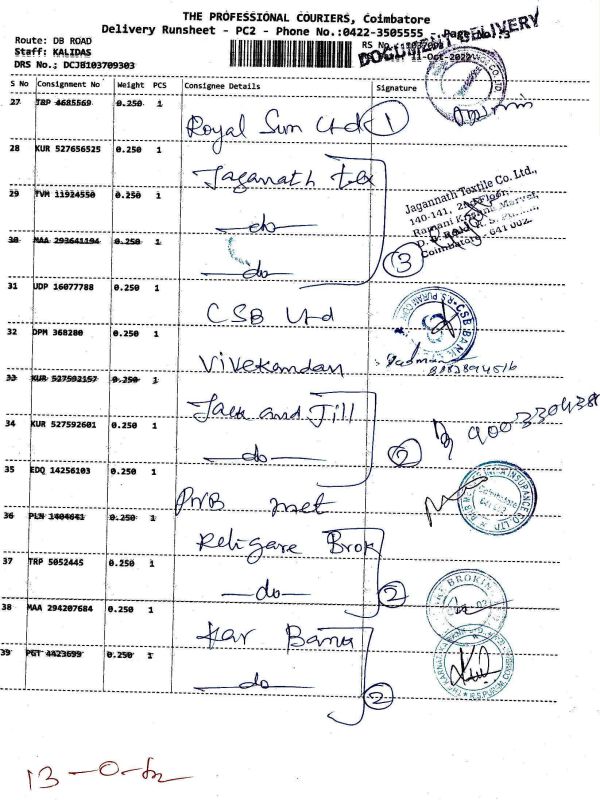 THE PROFESSIONAL COURIERS, Coimbatore
Delivery Runsheet - PC2 - Phone No.:0422-3505555
DOCUMENT DELIVERY
Route: DB ROAD
Staff: KALIDAS
11-Oct-2022
DRS No.: DCJB103709303
S No Consignment No Weight PCS Consignee Details Signature
27 TRP 4685569 0.250 1 Royal Sun Ltd 1
28 KUR 527656525 0.250 1 Jagannath tex
29 TVM 11924550 0.250 1 do
Jagannath Textile Co. Ltd.,
140-141, 2nd Floor,
Coimbatore - 641 002.
30 MAA 293641194 0.250 1 do 3
31 UDP 16077788 0.250 1 CSB Ltd
CSB BANK
32 DPM 368280 0.250 1 Vivekamdan
33 KUR 527592157 0.250 1 Jack and Jill
34 KUR 527592601 0.250 1 do 2
35 EDQ 14256103 0.250 1 PNB met
INSURANCE CO. LTD.
Coimbatore
36 PLN 1404641 0.250 1 Religare Brok
37 TRP 5052445 0.250 1 do 2
BROKING
38 MAA 294207684 0.250 1 Kar Bank
39 PGT 4423699 0.250 1 do 2